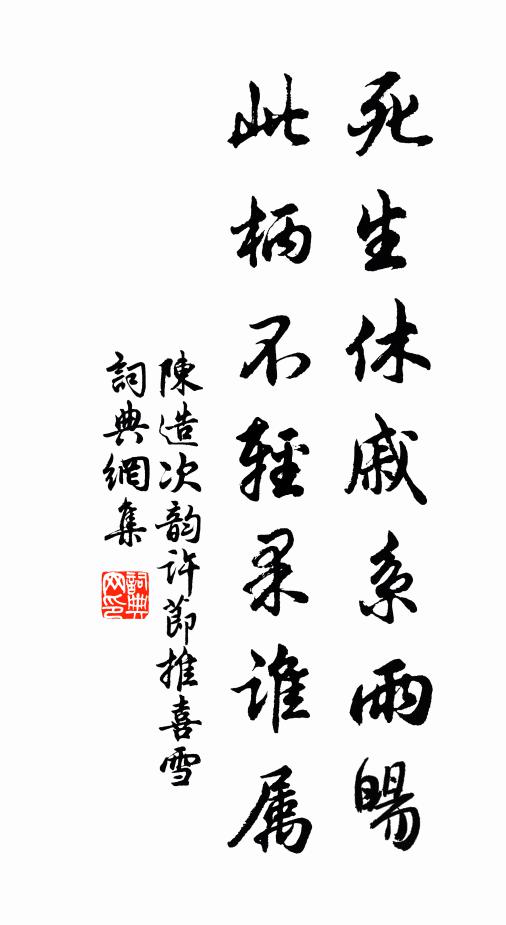 死生休戚系雨暘
此柄不輕果誰属
陳造次韵許節推喜雪
詞典網集
詞典网印